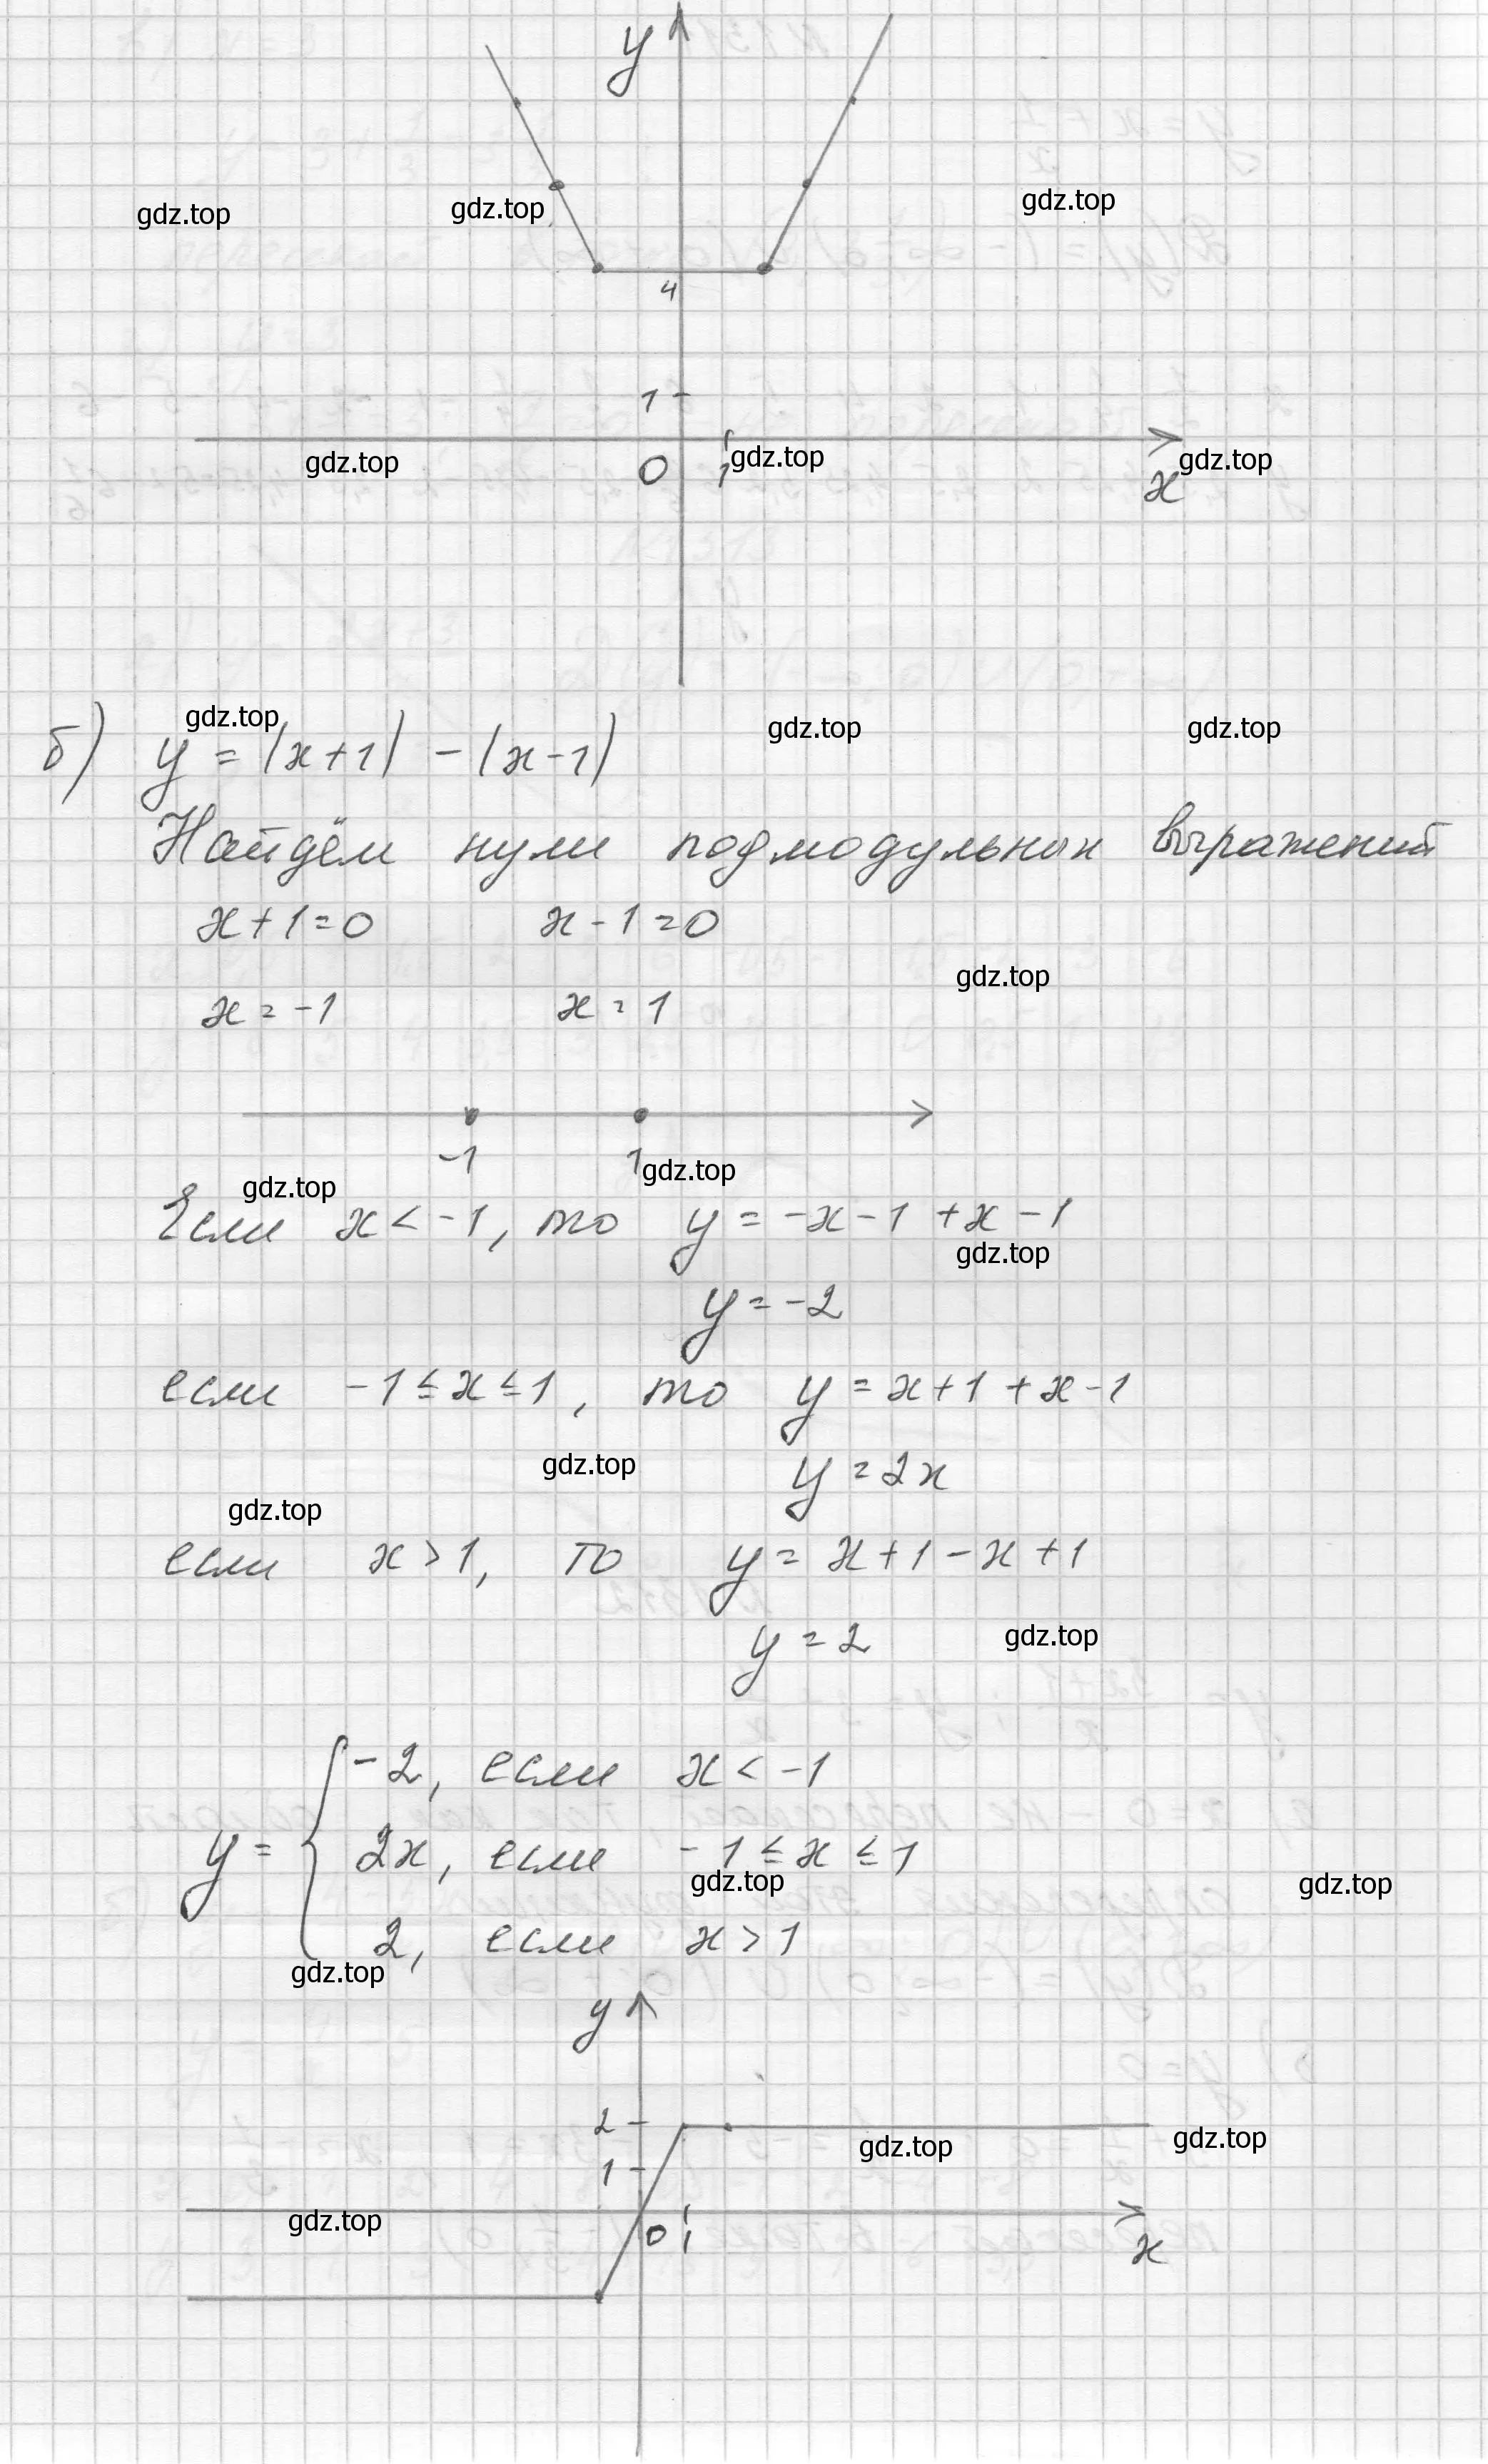 y
gdz.top gdz.top gdz.top
4
1
gdz.top 0 1 gdz.top gdz.top
x
gdz.top gdz.top gdz.top
б) y = |x+1| - |x-1|
Найдём нули подмодульных выражений
x+1=0 x-1=0
gdz.top
x = -1 x = 1
-1 1 gdz.top
gdz.top
Если x < -1, то y = -x-1 +x-1
gdz.top
y = -2
если -1 ≤ x ≤ 1, то y = x+1 +x-1
gdz.top y = 2x
gdz.top
если x > 1, то y = x+1-x+1
y = 2 gdz.top
-2, если x < -1
y = { 2x, если -1 ≤ x ≤ 1
gdz.top gdz.top
2, если x > 1
gdz.top
y
2
gdz.top gdz.top
1
gdz.top 0 1
x